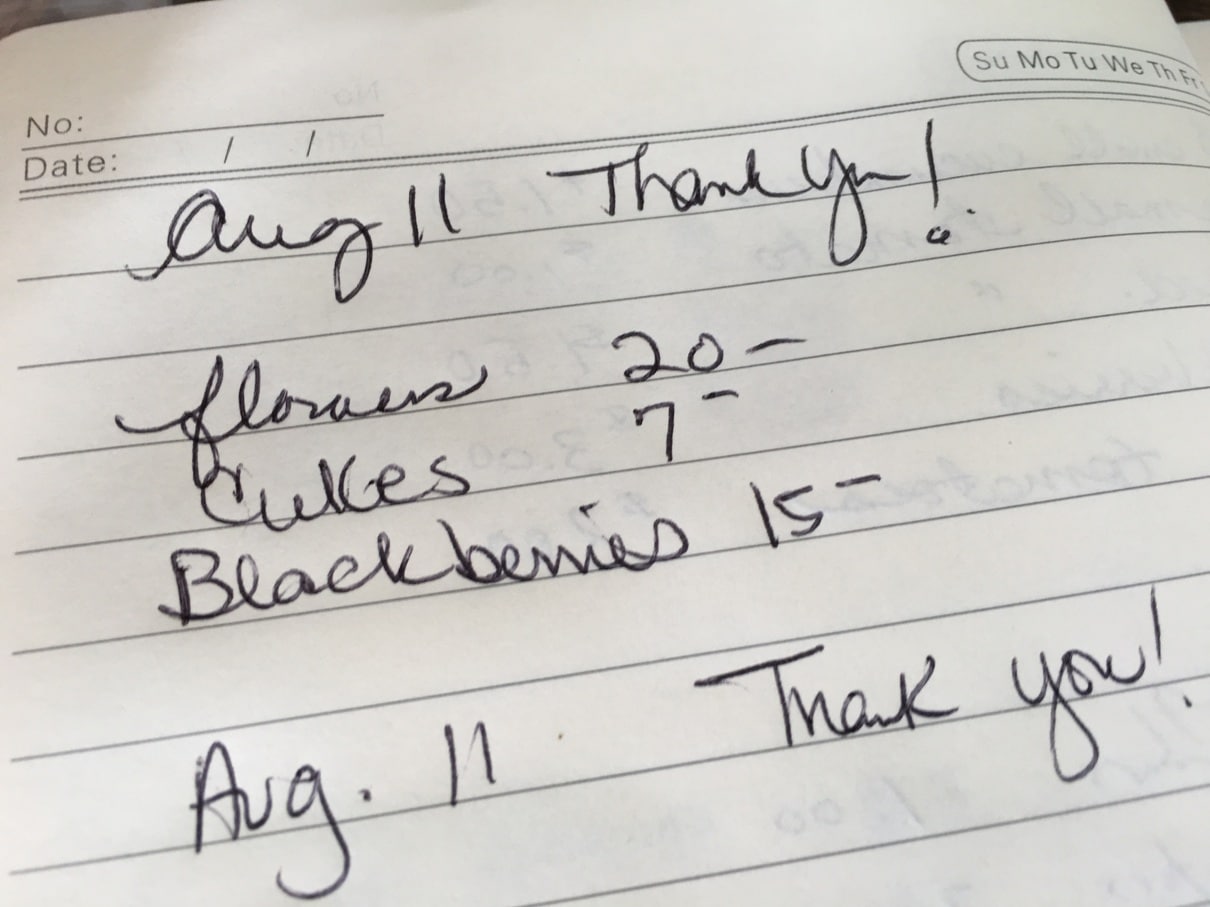 Su Mo Tu We Th Fr
No:
Date: / /
Aug 11 Thank You!
flowers 20 —
Cukes 7 —
Blackberries 15 —
Aug. 11 Thank you!